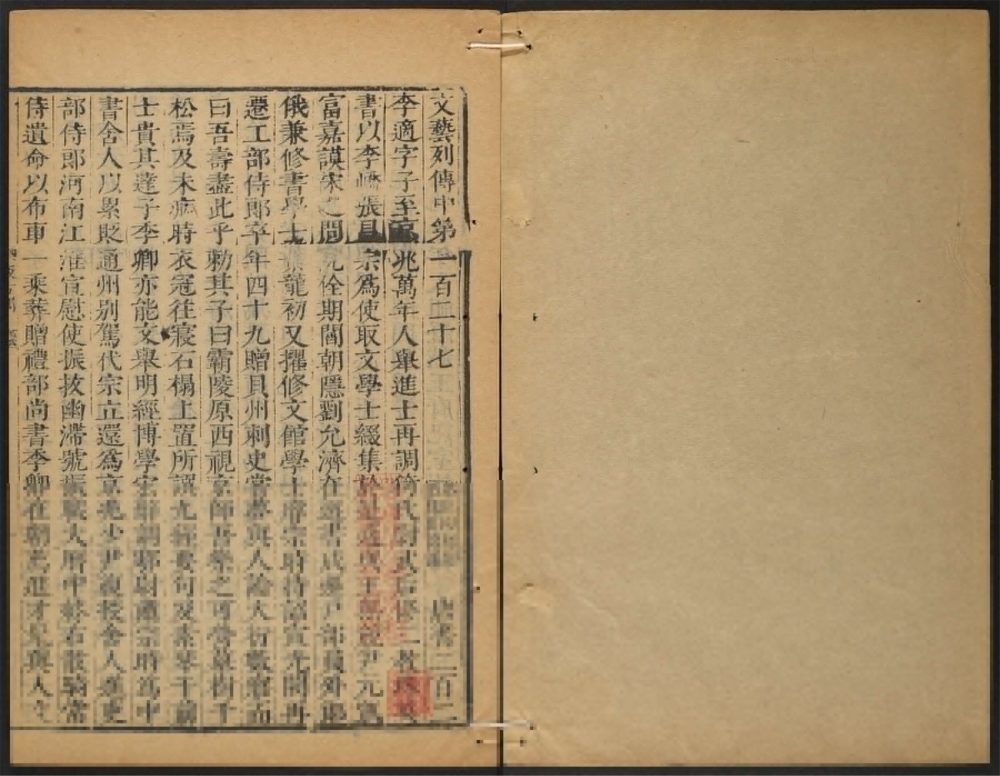 文藝列傳中第一百二十七 唐書二百二
李適字子至京兆萬年人舉進士再調猗氏尉武后修三教珠英
書以李嶠張昌宗爲使取文學士綴集於是適與王無競尹元
富嘉謨宋之問沈佺期閻朝隱劉允濟在選書成遷戶部員外郎
俄兼修書學士景龍初又擢修文館學士睿宗時待詔宣光閣再
遷工部侍郎卒年四十九贈貝州刺史嘗夢與人論大衍數寤而
曰吾壽盡此乎勑其子曰霸陵原西視京師吾樂之可營墓樹十
松焉及未病時衣冠往寢石榻上置所譔九經要句及素琴于前
士貴其達子季卿亦能文舉明經博學宏辭調鄠尉肅宗時爲中
書舍人以累貶通州別駕代宗立還爲京兆少尹復授舍人進吏
部侍郎河南江淮宣慰使振拔幽滯號振職大曆中終右散騎常
侍遺命以布車一乘葬贈禮部尚書季卿在朝薦進才與人交